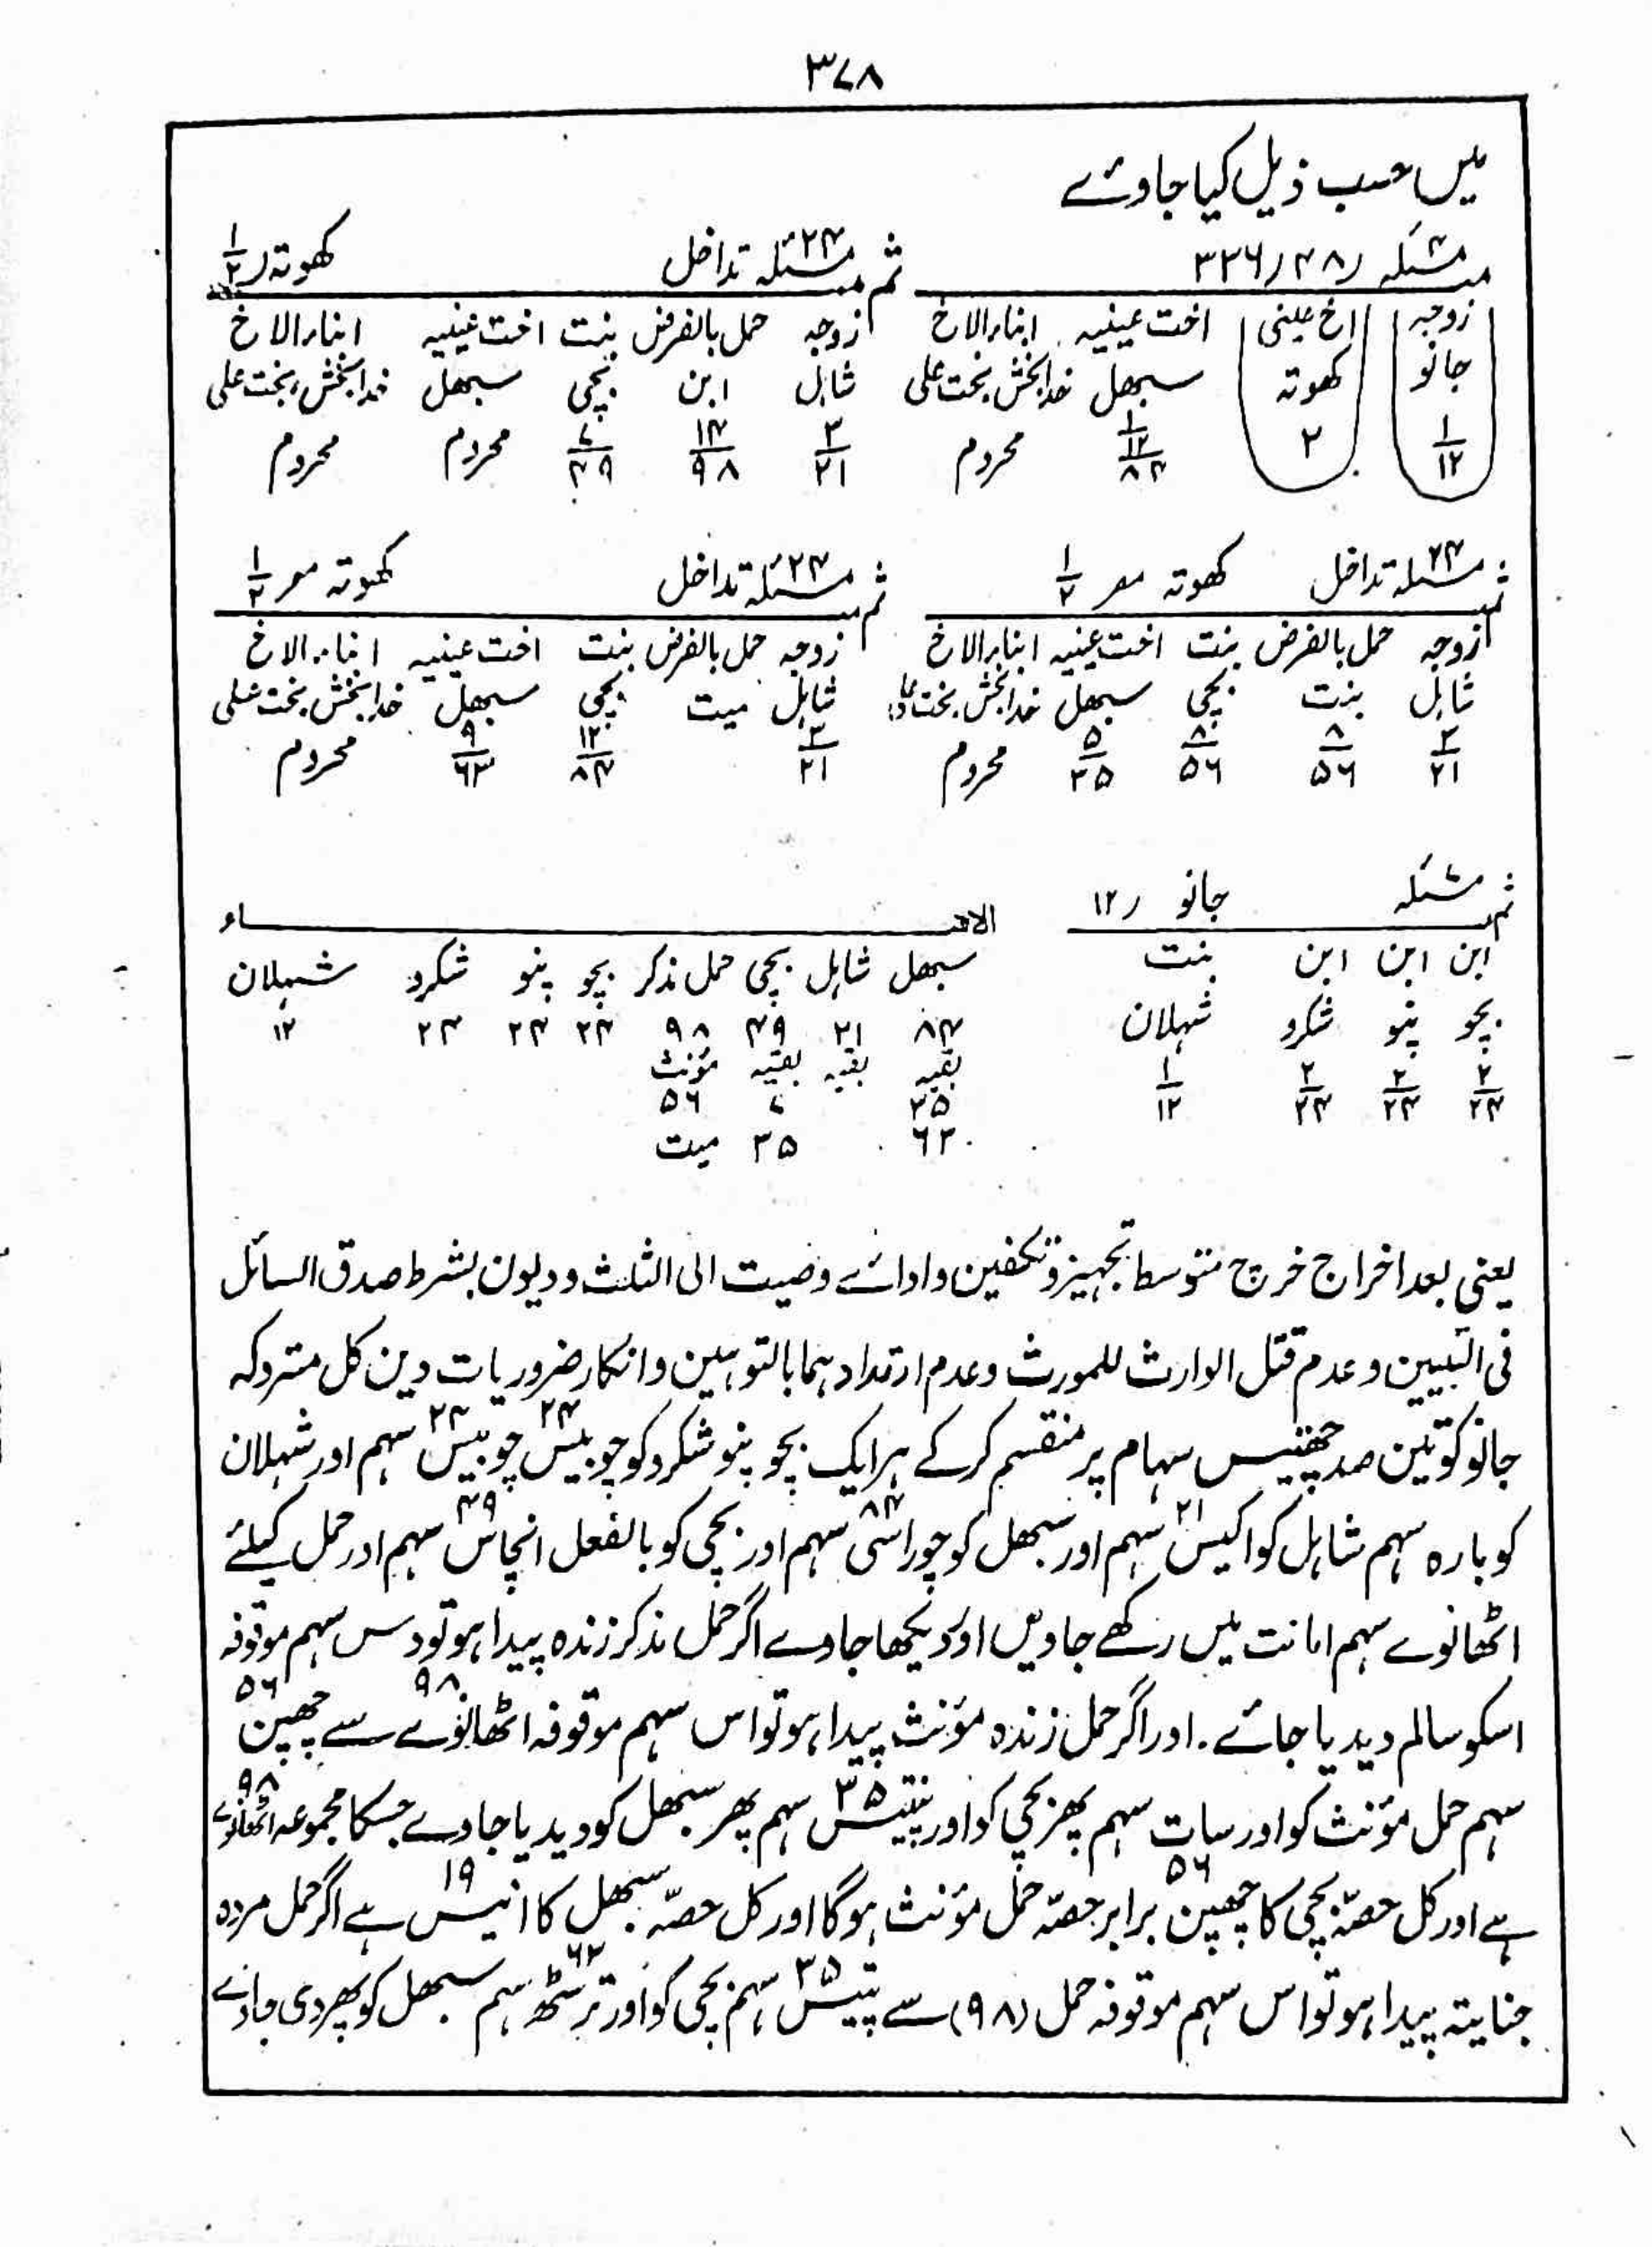 ۳۷۸
میں حسب ذیل کیا جاوئے
مسئلہ ۴ / ۴۸ / ۳۳۶
زوجہ اخ عینی اخت عینیہ ابناء الاخ
جانو کھوتہ سبھل خدابخش بخت علی
۱ ۲ ۱ محروم
۱۲ ۱۲
۸۴
ثم مسئلہ ۲۴ تداخل کھوتہ / ۱/۲
زوجہ حمل بالفرض بنت اخت عینیہ ابناء الاخ
شاہل ابن بچی سبھل خدابخش، بخت علی
۳ ۱۴ ۷ محروم محروم
۲۱ ۹۸ ۴۹
ثم مسئلہ ۲۴ تداخل کھوتہ معہ ۱/۲
زوجہ حمل بالفرض بنت اخت عینیہ ابناء الاخ
شاہل بنت بچی سبھل خدابخش بخت علی
۳ ۸ ۸ ۵ محروم
۲۱ ۵۶ ۵۶ ۳۵
ثم مسئلہ ۲۴ تداخل کھوتہ معہ ۱/۲
زوجہ حمل بالفرض بنت اخت عینیہ ابناء الاخ
شاہل میت بچی سبھل خدابخش بخت علی
۳ ۱۲ ۹ محروم
۲۱ ۸۴ ۶۳
ثم مسئلہ ۷ جانو / ۱۲
ابن ابن ابن بنت
بچو پنو شکرد شہلان
۲ ۲ ۲ ۱
۲۴ ۲۴ ۲۴ ۱۲
الاحیاء
سبھل شاہل بچی حمل مذکر بچو پنو شکرد شہلان
۸۴ ۲۱ ۴۹ ۹۸ ۲۴ ۲۴ ۲۴ ۱۲
بقیہ بقیہ بقیہ مؤنث
۳۵ ۷ ۵۶
۶۳ ۳۵ میت
یعنی بعد اخراج خرچ متوسط تجہیز و تکفین و ادائے وصیت الی الثلث و دیون بشرط صدق السائل
فی التبیین و عدم قتل الوارث للمورث و عدم ارتدادہما بالتوہین و انکار ضروریات دین کل متروکہ
جانو کو تین صد چھتیس سہام پر منقسم کرکے ہر ایک بچو پنو شکرد کو چوبیس۲۴ چوبیس۲۴ سہم اور شہلان
کو بارہ سہم شاہل کو اکیس۲۱ سہم اور سبھل کو چوراسی۸۴ سہم اور بچی کو بالفعل انچاس۴۹ سہم اور حمل کیلئے
اٹھانوے سہم امانت میں رکھے جاویں اور دیکھا جاوے اگر حمل مذکر زندہ پیدا ہو تو دس سہم موقوفہ
اسکو سالم دیدیا جائے۔ اور اگر حمل زندہ مؤنث پیدا ہو تو اس سہم موقوفہ اٹھانوے۹۸ سے چھپن۵۶
سہم حمل مؤنث کو اور سات سہم پھر بچی کو اور پینتیس۳۵ سہم پھر سنبھل کو دیدیا جاوے جسکا مجموعہ اٹھانوے۹۸
ہے اور کل حصّہ بچی کا چھپن۵۶ برابر حصّہ حمل مؤنث ہوگا اور کل حصّہ سبھل کا انیس۱۹ ہے اگر حمل مردہ
جنایتہ پیدا ہو تو اس سہم موقوفہ حمل (۹۸) سے پینتیس۳۵ سہم بچی کو اور ترسٹھ۶۳ سہم سبھل کو پھر دی جاوئے